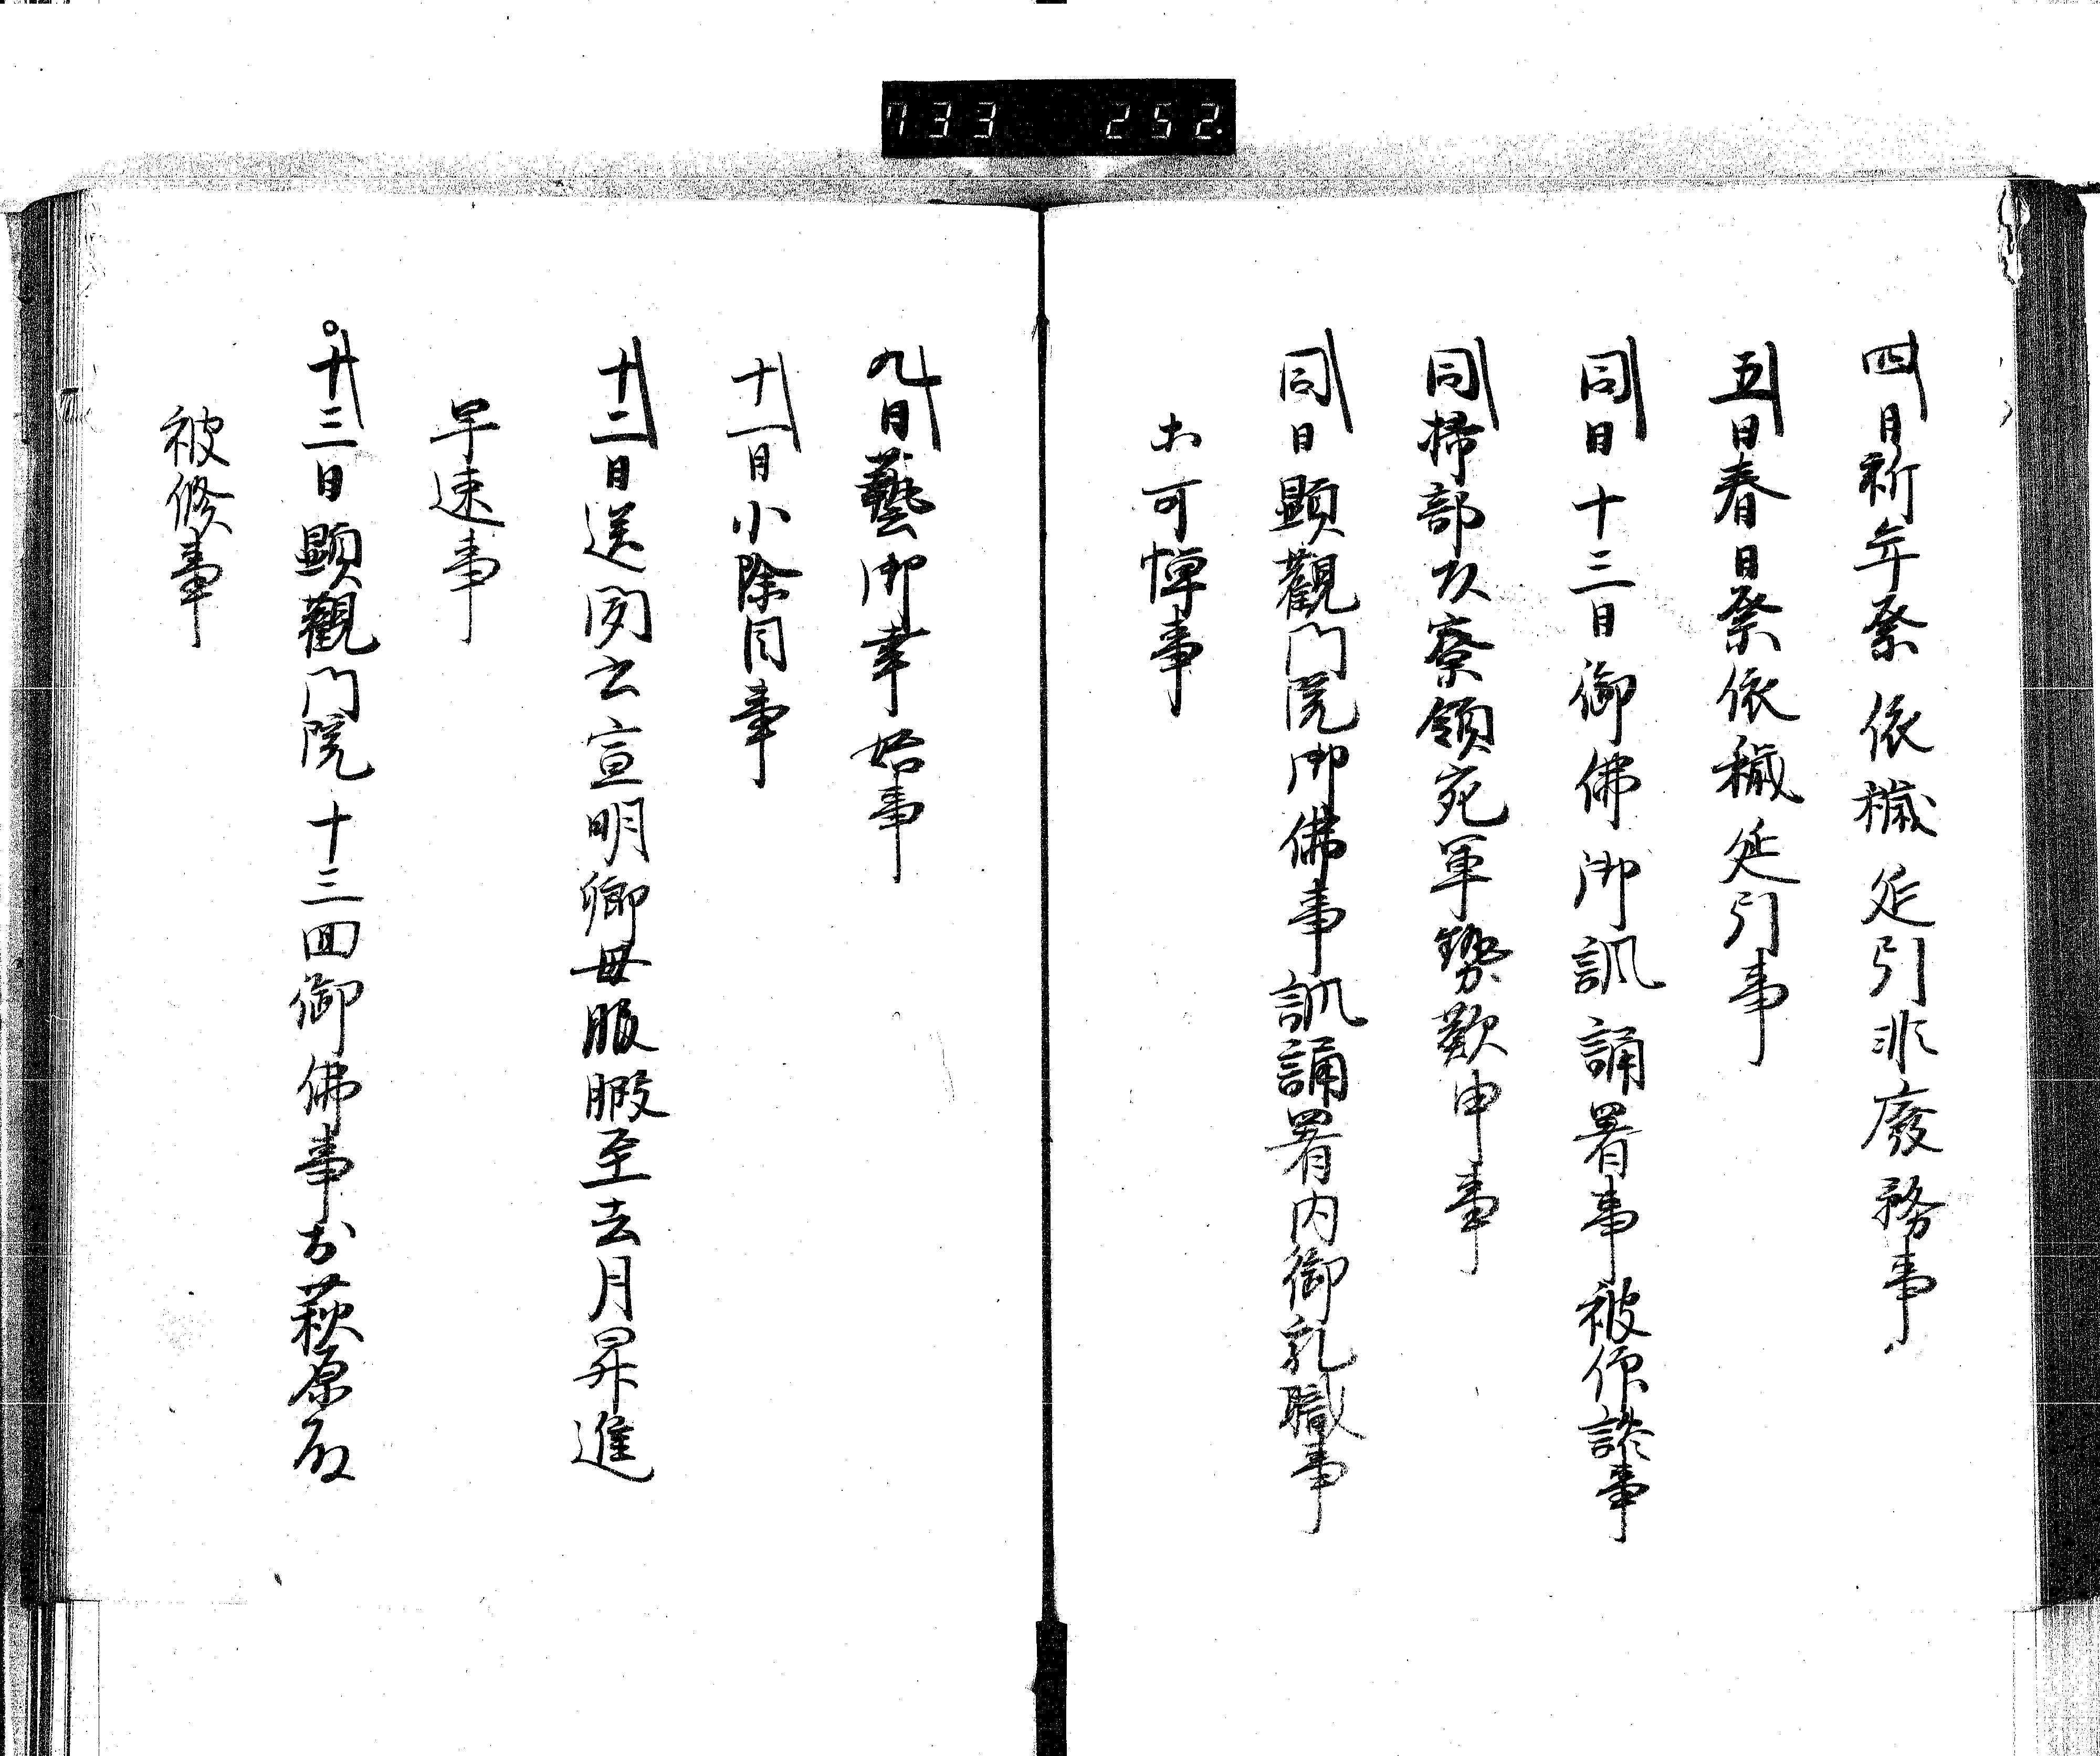 733 252.
四日祈年祭依穢延引非廃務事
五日春日祭依穢延引事
同日十三日御佛御諷誦署事被仰談事
同掃部頭寮領宛軍勢歎申事
同日顕觀門院御佛事諷誦署内御乳職事
お可憚事
九日藝御幸始事
十一日小除目事
十二日送図云宣明卿母服暇至去月昇進
早速事
十三日顕觀門院十三回御佛事於萩原殿
被修事